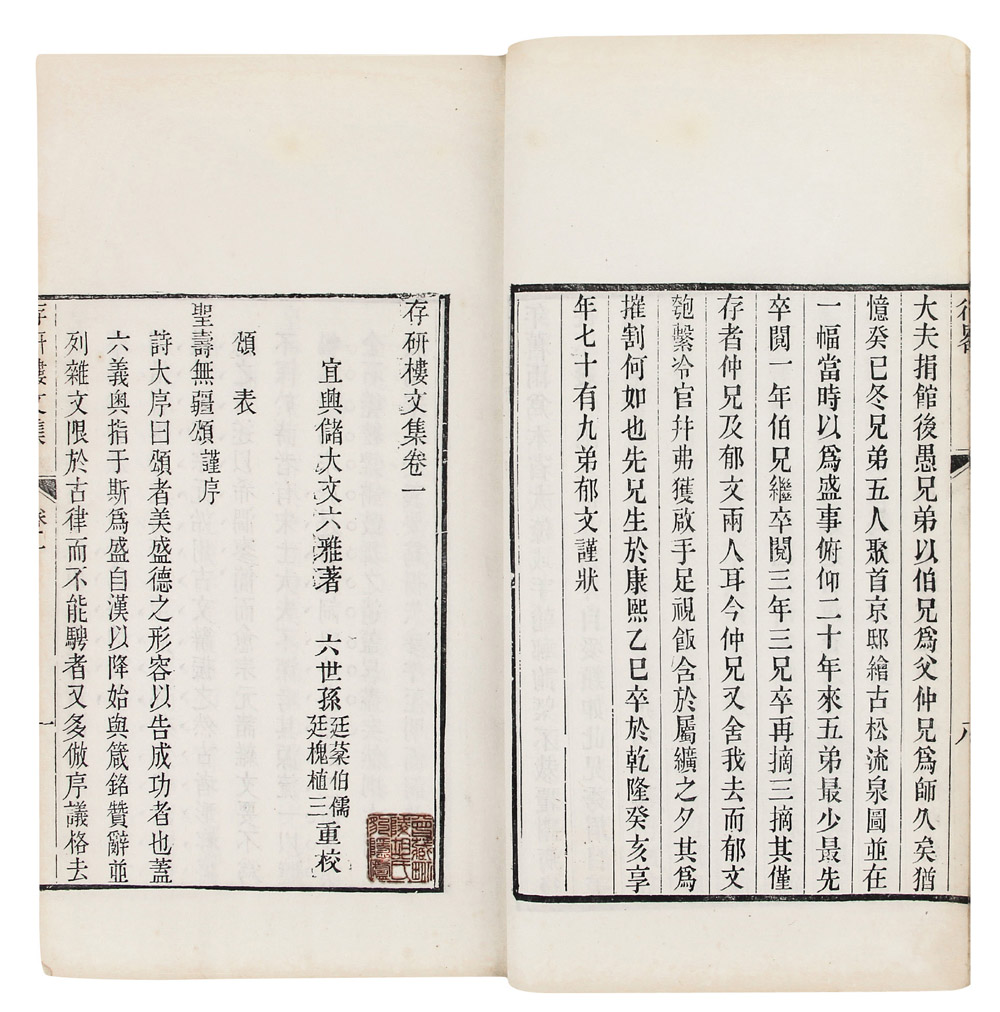 行畧
八
大夫捐館後愚兄弟以伯兄爲父仲兄爲師久矣猶
憶癸巳冬兄弟五人聚首京邸繪古松流泉圖並在
一幅當時以爲盛事俯仰二十年來五弟最少最先
卒閱一年伯兄繼卒閱三年三兄卒再摘三摘其僅
存者仲兄及郁文兩人耳今仲兄又舍我去而郁文
匏繫冷官幷弗獲啟手足視飯含於屬纊之夕其爲
摧割何如也先兄生於康熙乙巳卒於乾隆癸亥享
年七十有九弟郁文謹狀
存研樓文集卷一
宜興儲大文六雅著 六世孫廷棻伯儒廷槐植三重校
頌 表
聖壽無疆頌謹序
詩大序曰頌者美盛德之形容以告成功者也蓋
六義奧指于斯爲盛自漢以降始與箴銘贊辭並
列雜文限於古律而不能騁者又多倣序議格去
存研樓文集
卷一
一